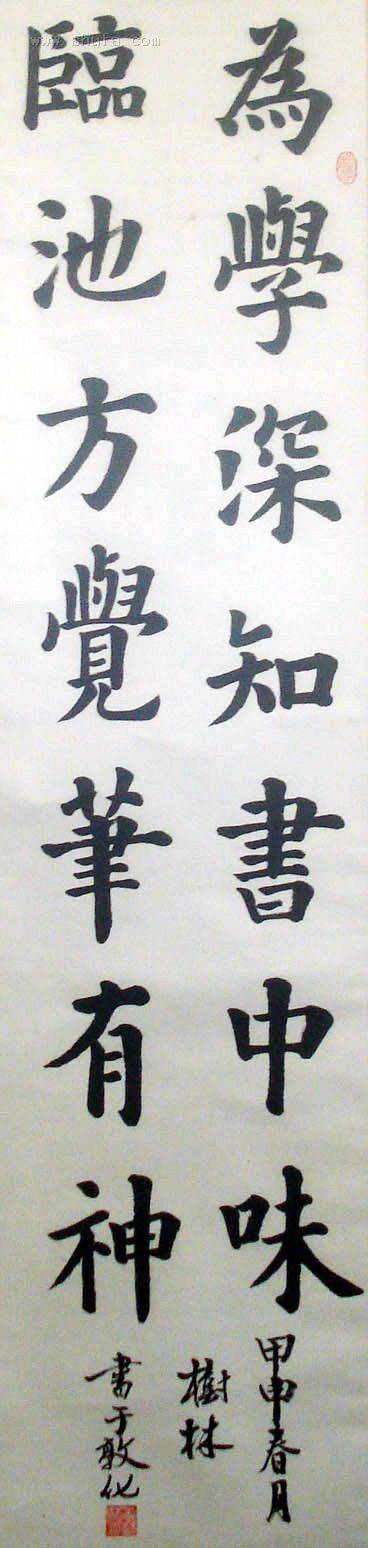 為學深知書中味
臨池方覺筆有神
甲申春月
樹林
書于敦化
www.shufa.com